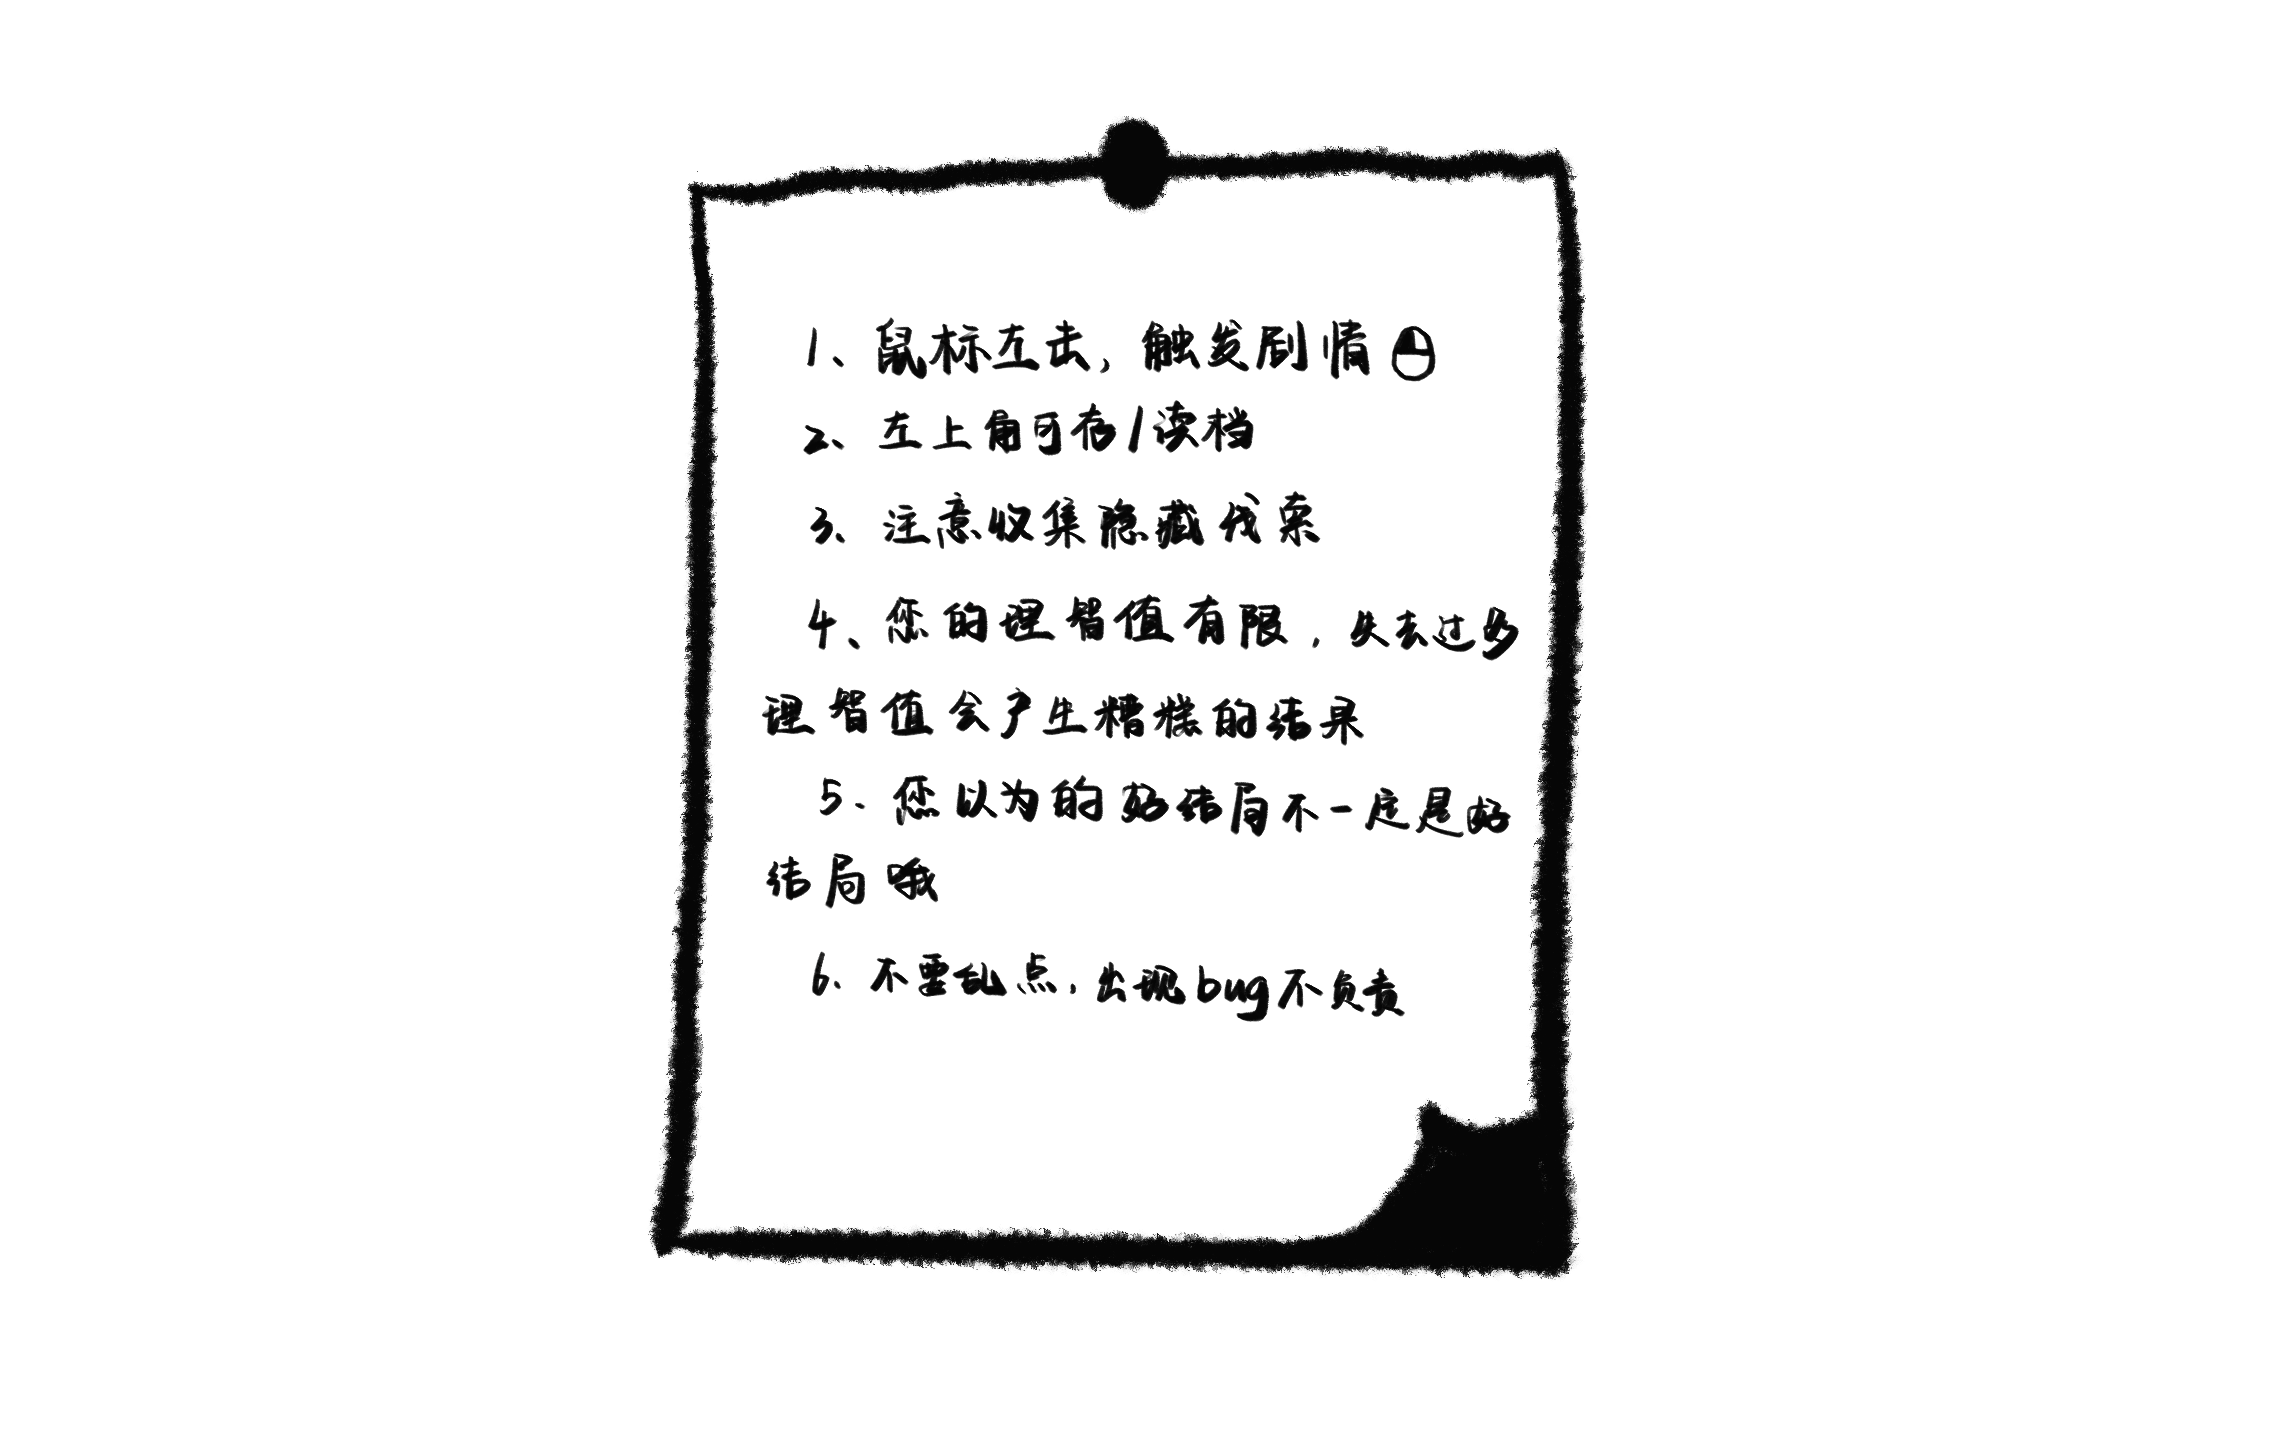 1、鼠标左击，触发剧情
2、左上角可存/读档
3、注意收集隐藏线索
4、您的理智值有限，失去过多
理智值会产生糟糕的结果
5、您以为的好结局不一定是好
结局哦
6、不要乱点，出现bug不负责